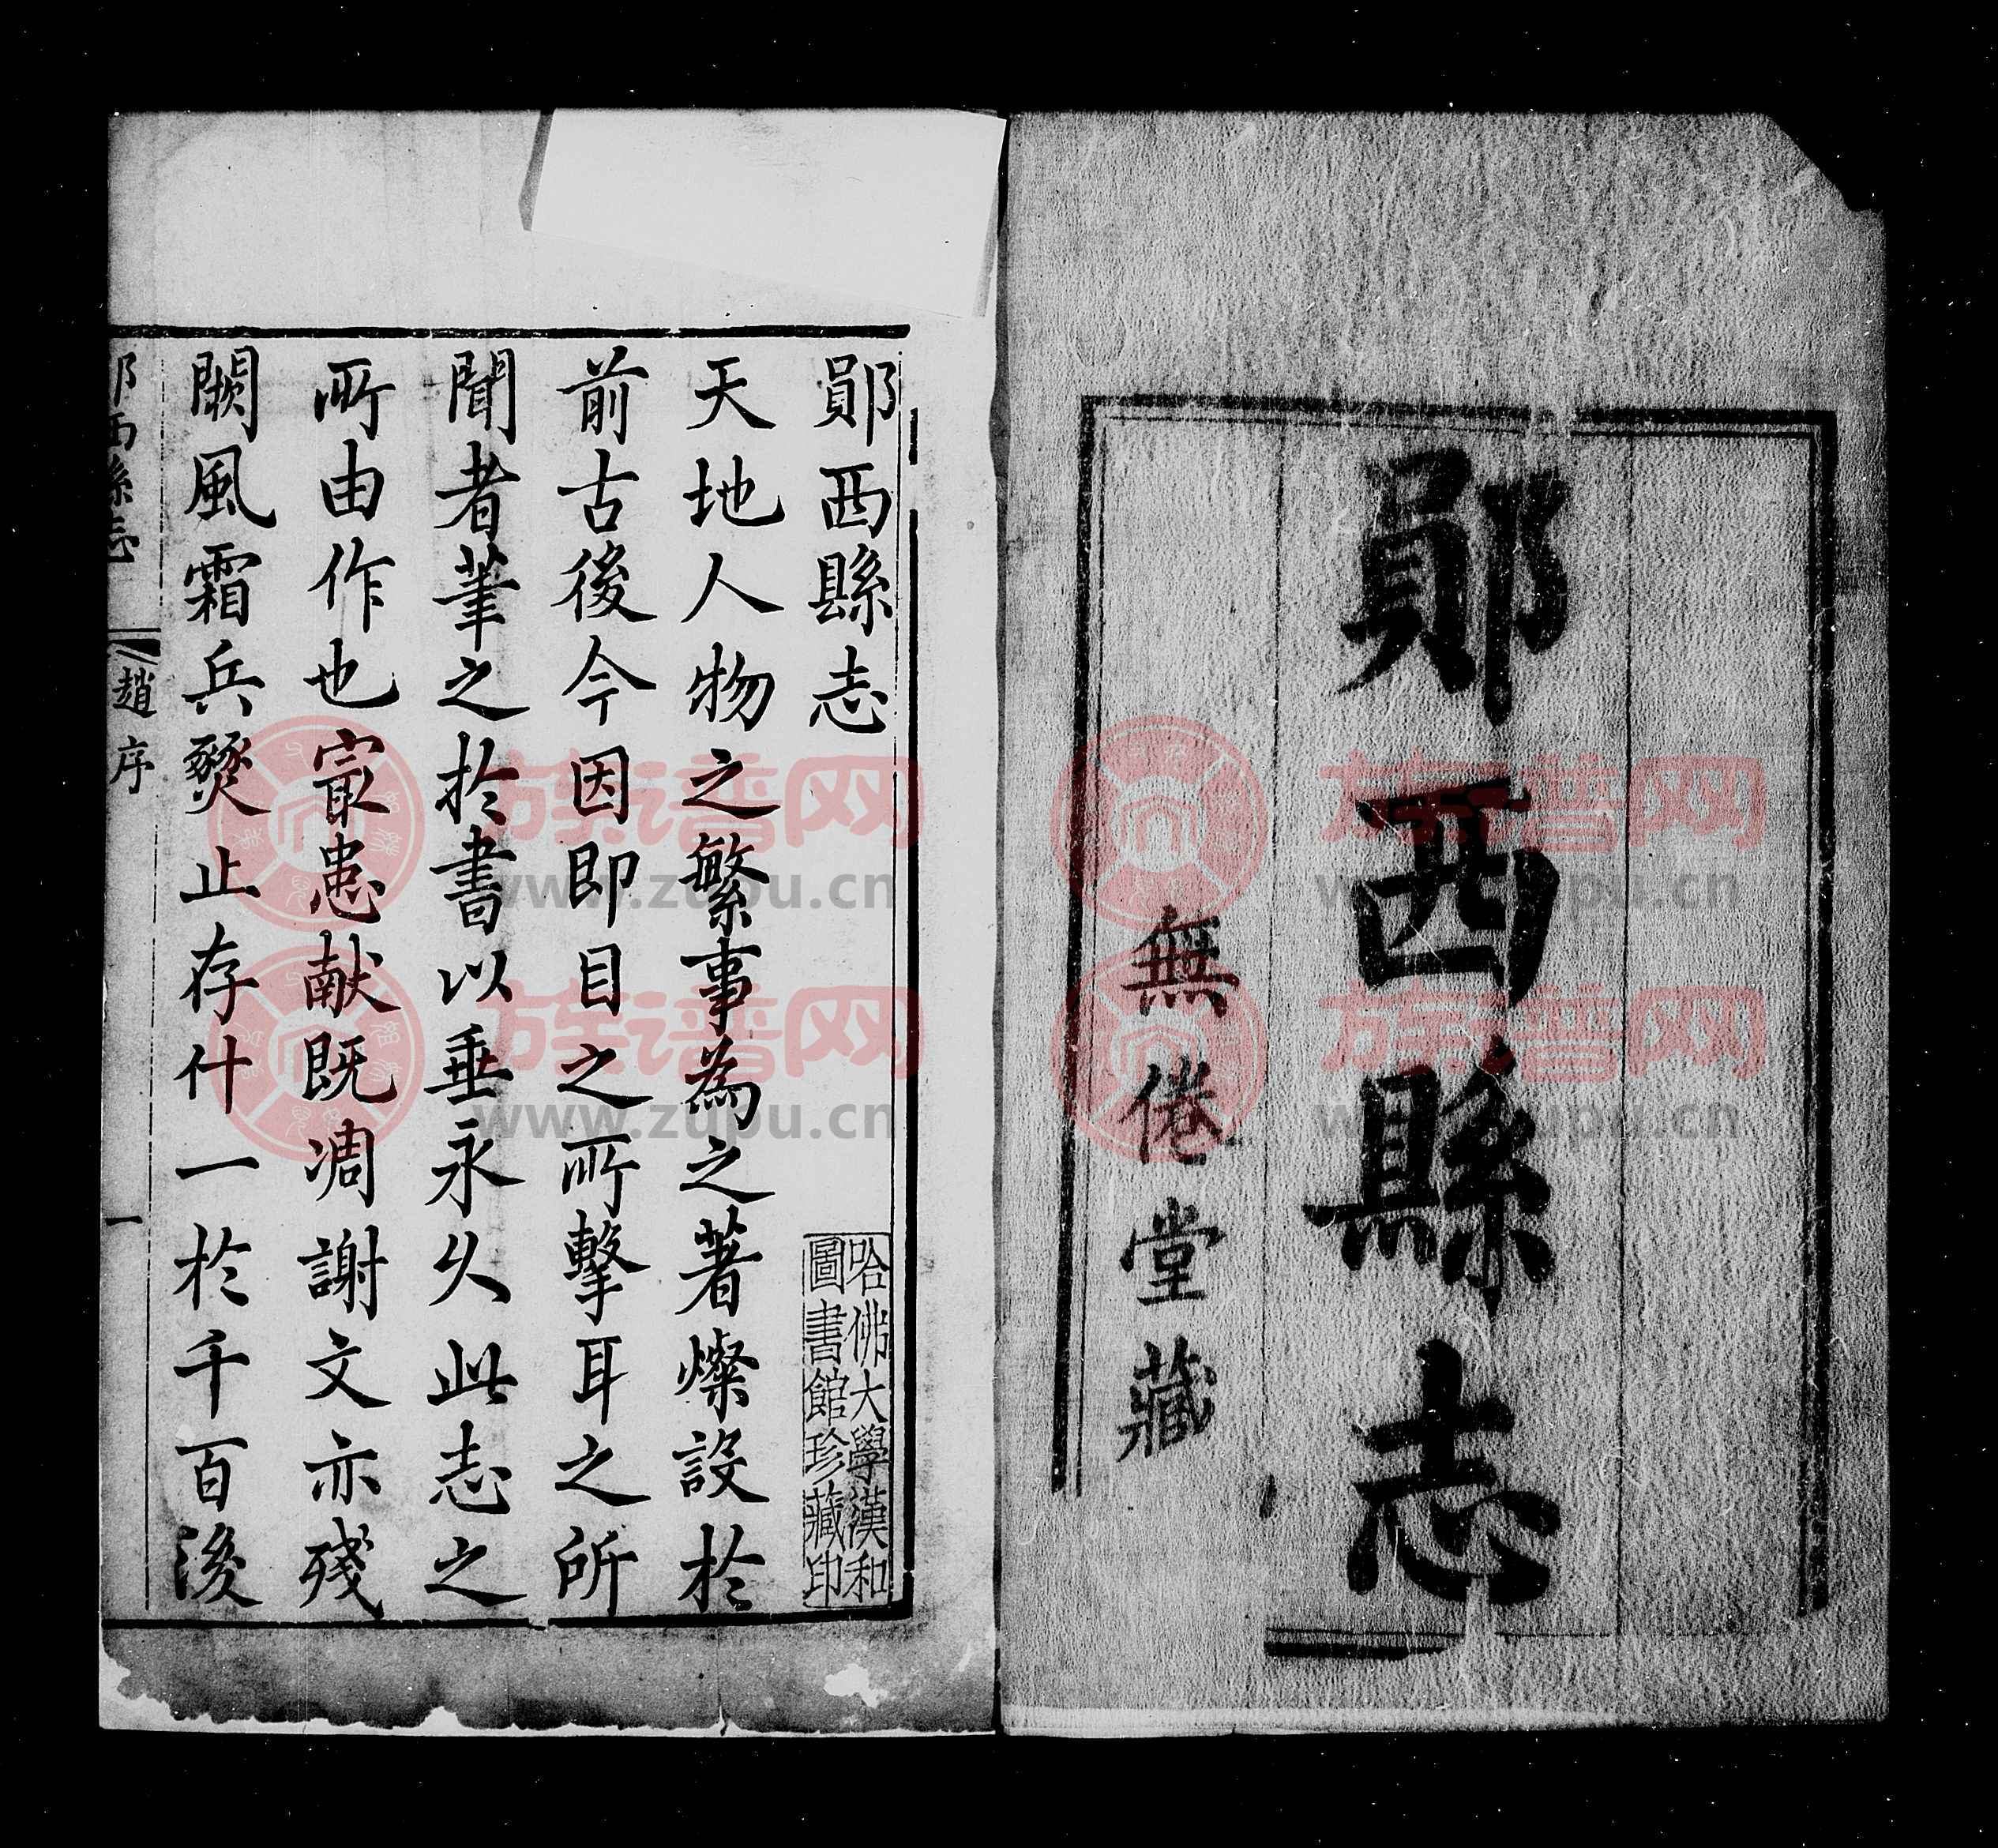 鄖西縣志
無倦堂藏
鄖西縣志
哈佛大學漢和
圖書館珍藏印
天地人物之繁事為之著燦設於
前古後今因即目之所擊耳之所
聞者筆之於書以垂永久此志之
所由作也寂患献既凋謝文亦殘
闕風霜兵燹止存什一於千百後
鄖西縣志
趙序
一
族谱网
www.zupu.cn
族谱网
www.zupu.cn
族谱网
www.zupu.cn
族谱网
www.zupu.cn